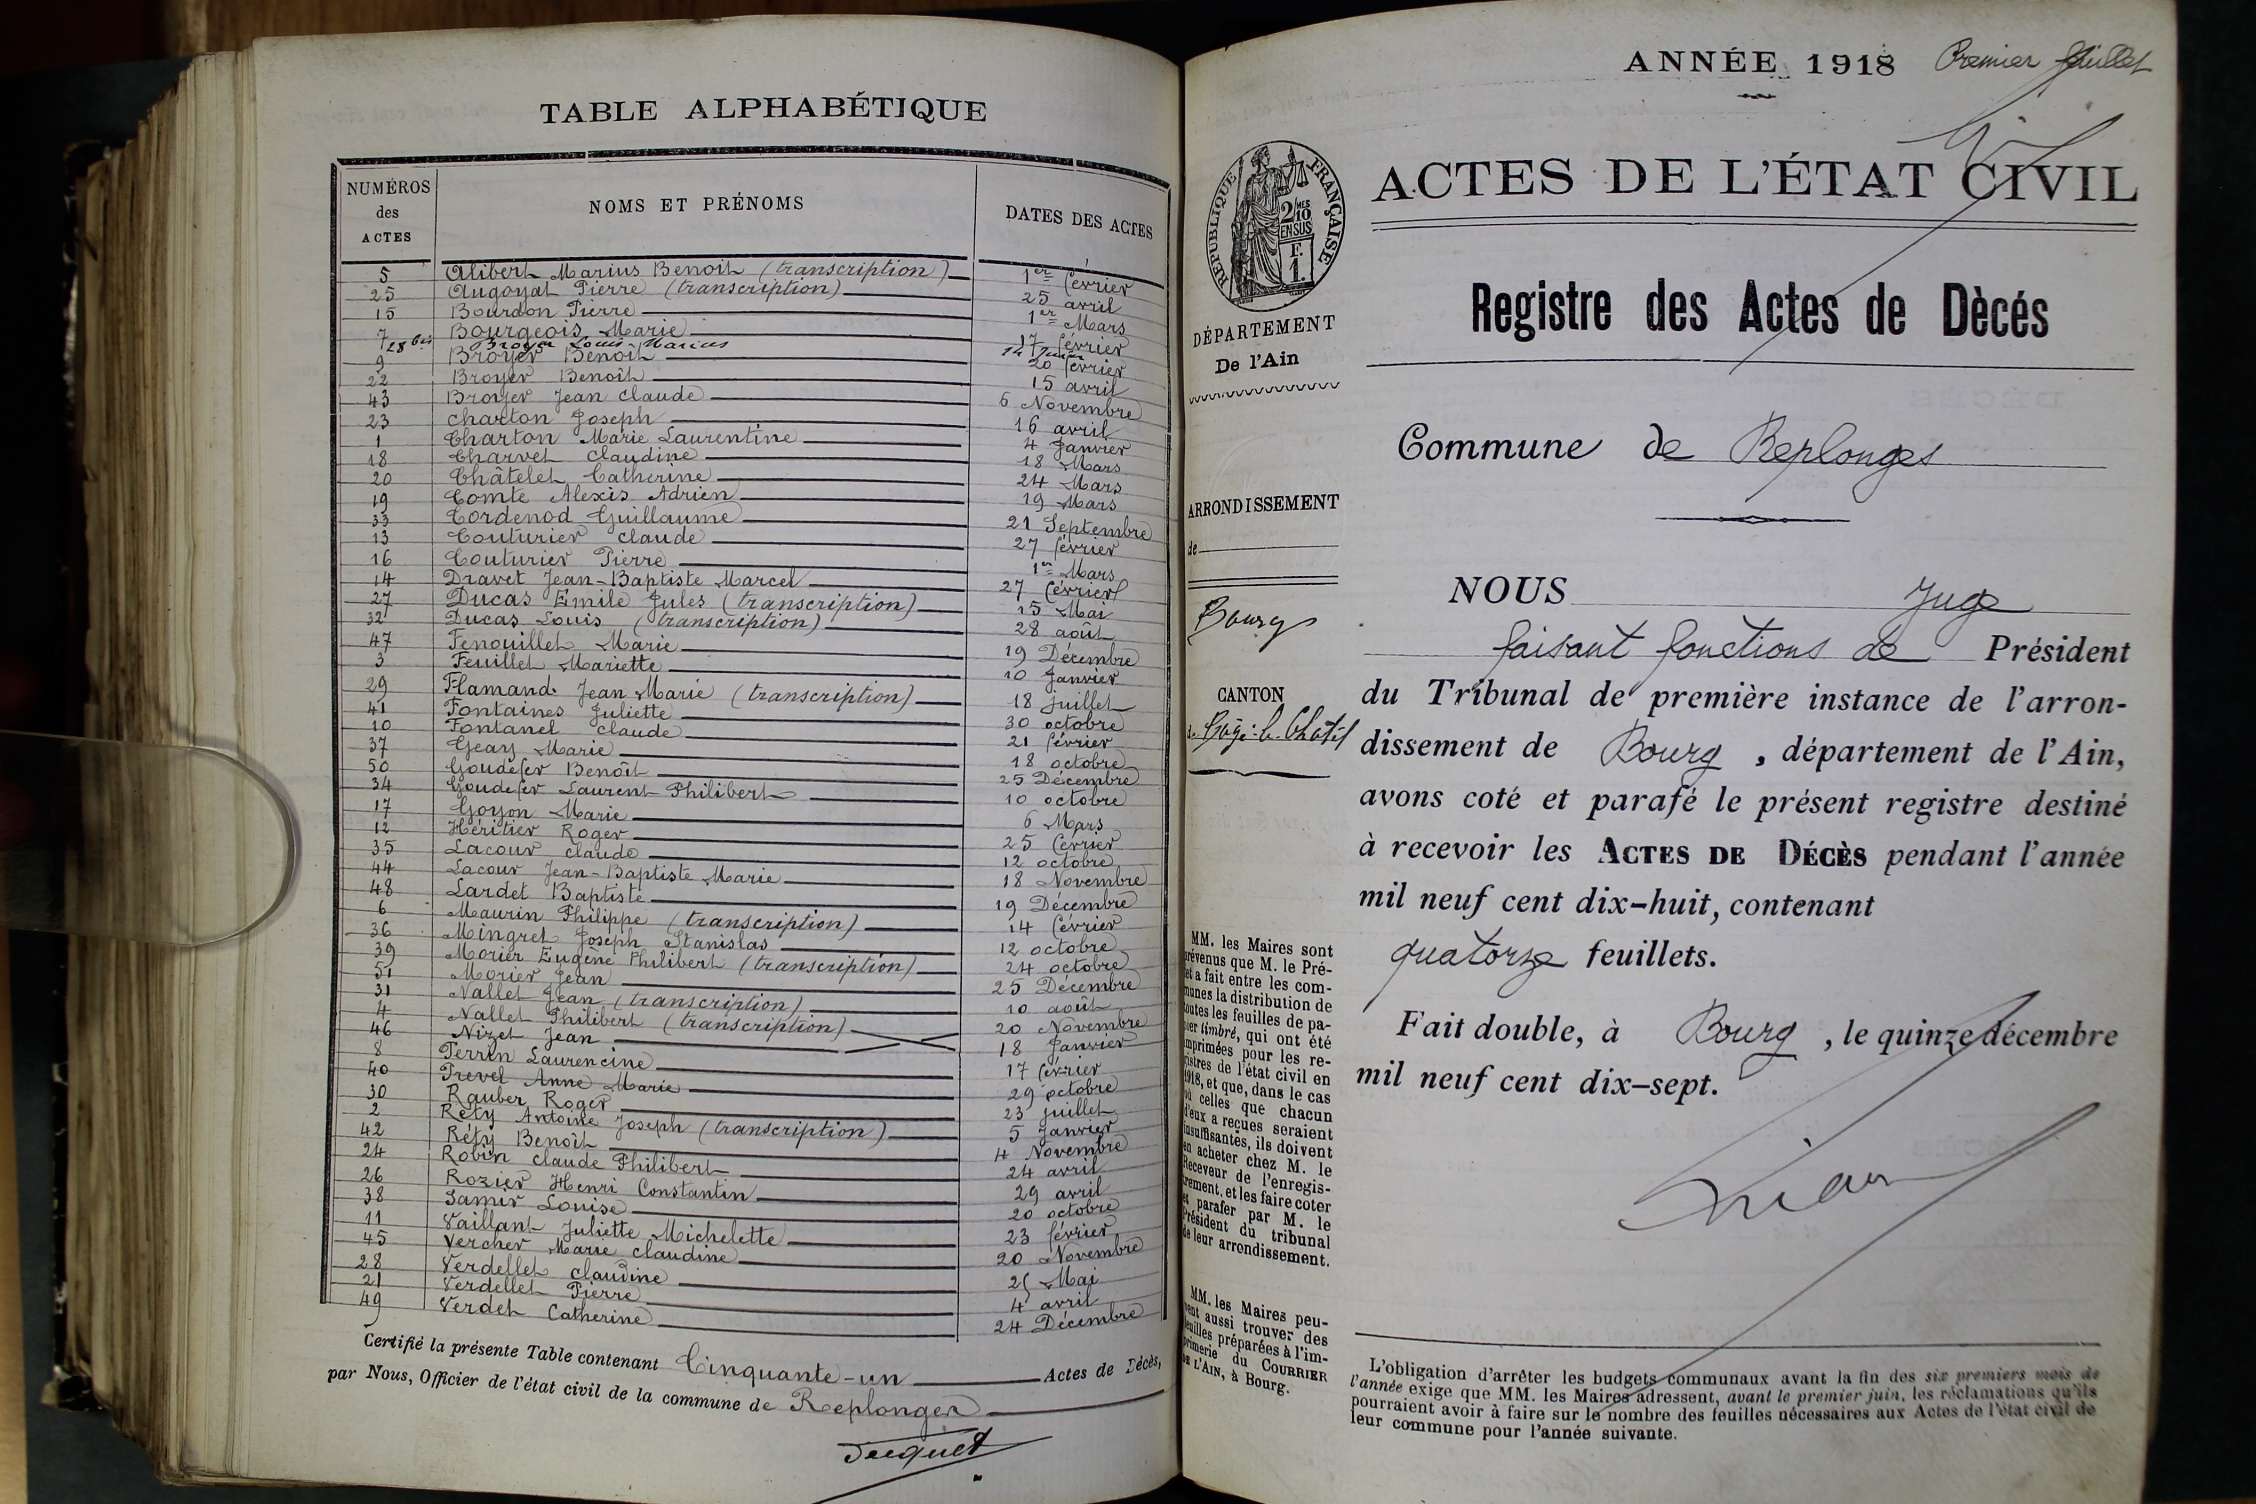 TABLE ALPHABÉTIQUE
NUMÉROS des ACTES NOMS ET PRÉNOMS DATES DES ACTES
5 Alibert Marius Benoit (transcription) 1er février
25 Augoyat Pierre (transcription) 25 avril
15 Bourdon Pierre 1er Mars
7 Bourgeois Marie 17 février
28 bis Broyer Louis Marius 14 Juin
9 Broyer Benoit 20 février
22 Broyer Benoît 15 avril
43 Broyer Jean Claude 6 Novembre
23 Charton Joseph 16 avril
1 Charton Marie Laurentine 4 Janvier
18 Charvet Claudine 18 Mars
20 Châtelet Catherine 24 Mars
19 Comte Alexis Adrien 19 Mars
33 Cordenod Guillaume 21 Septembre
13 Couturier Claude 27 février
16 Couturier Pierre 1er Mars
14 Dravet Jean-Baptiste Marcel 27 février
27 Ducas Émile Jules (transcription) 15 Mai
32 Ducas Louis (transcription) 28 août
47 Fenouillet Marie 19 Décembre
3 Feuillet Mariette 10 Janvier
29 Flamand Jean Marie (transcription) 18 juillet
41 Fontaines Juliette 30 octobre
10 Fontanel Claude 21 février
37 Geay Marie 18 octobre
50 Goudefer Benoît 25 Décembre
34 Goudefer Laurent Philibert 10 octobre
17 Goyon Marie 6 Mars
12 Héritier Roger 25 février
35 Lacour Claude 12 octobre
44 Lacour Jean-Baptiste Marie 18 Novembre
48 Lardet Baptiste 19 Décembre
6 Maurin Philippe (transcription) 14 février
36 Mingret Joseph Stanislas 12 octobre
39 Morier Eugène Philibert (transcription) 24 octobre
51 Morier Jean 25 Décembre
31 Nallet Jean (transcription) 10 août
4 Nallet Philibert (transcription) 20 Novembre
46 Nizet Jean 18 Janvier
8 Perrin Laurencine 17 février
40 Prevel Anne Marie 29 octobre
30 Rauber Roger 23 juillet
2 Réty Antoine Joseph (transcription) 5 Janvier
42 Réty Benoît 4 Novembre
24 Robin Claude Philibert 24 avril
26 Rozier Henri Constantin 29 avril
38 Samir Louise 20 octobre
11 Vaillant Juliette Michelette 23 février
45 Vercher Marie Claudine 20 Novembre
28 Verdellet Claudine 25 Mai
21 Verdellet Pierre 4 avril
49 Verdet Catherine 24 Décembre
Certifié la présente Table contenant Cinquante-un Actes de Décès,
par Nous, Officier de l'état civil de la commune de Replonges
Jacquet
ANNÉE 1918 Premier feuillet
ACTES DE L'ÉTAT CIVIL
RÉPUBLIQUE FRANÇAISE
2/10 MES EN SUS
F. 1.
DÉPARTEMENT
De l'Ain
ARRONDISSEMENT
de
Bourg
CANTON
de Bâgé-le-Châtel
MM. les Maires sont
prévenus que M. le Pré-
fet a fait entre les com-
munes la distribution de
toutes les feuilles de pa-
pier timbré, qui ont été
imprimées pour les re-
gistres de l'état civil en
1918, et que, dans le cas
où celles que chacun
d'eux a reçues seraient
insuffisantes, ils doivent
en acheter chez M. le
Receveur de l'enregis-
trement, et les faire coter
et parafer par M. le
Président du tribunal
de leur arrondissement.
MM. les Maires peu-
vent aussi trouver des
feuilles préparées à l'im-
primerie du COURRIER
DE L'AIN, à Bourg.
Registre des Actes de Dècés
Commune de Replonges
NOUS Juge
faisant fonctions de Président
du Tribunal de première instance de l'arron-
dissement de Bourg, département de l'Ain,
avons coté et parafé le présent registre destiné
à recevoir les ACTES DE DÉCÈS pendant l'année
mil neuf cent dix-huit, contenant
quatorze feuillets.
Fait double, à Bourg, le quinze décembre
mil neuf cent dix-sept.
L'obligation d'arrêter les budgets communaux avant la fin des six premiers mois de
l'année exige que MM. les Maires adressent, avant le premier juin, les réclamations qu'ils
pourraient avoir à faire sur le nombre des feuilles nécessaires aux Actes de l'état civil de
leur commune pour l'année suivante.